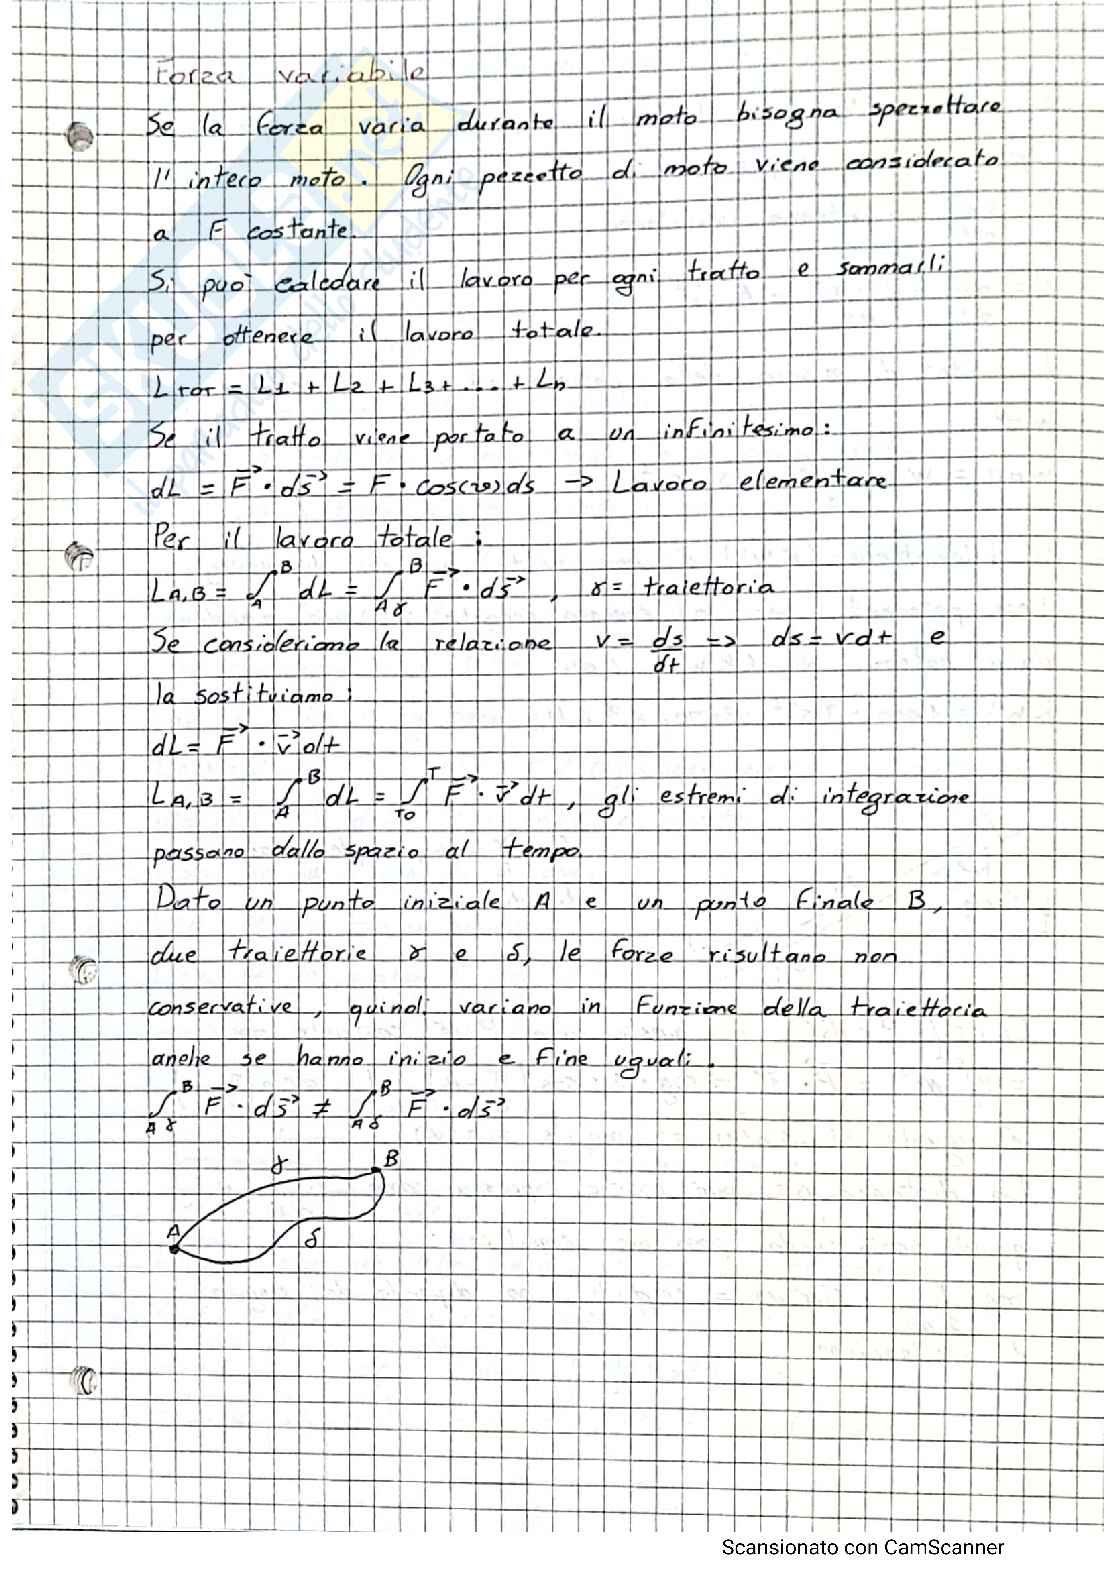 Forza variabile
Se la forza varia durante il moto bisogna spezzettare
l'intero moto. Ogni pezzetto di moto viene considerato
a F costante.
Si può calcolare il lavoro per ogni tratto e sommarli
per ottenere il lavoro totale.
LTOT = L1 + L2 + L3 + .... + Ln
Se il tratto viene portato a un infinitesimo:
dL = F⃗ · ds⃗ = F · cos(θ) ds -> Lavoro elementare
Per il lavoro totale:
LA,B = ∫_A^B dL = ∫_Aγ^B F⃗ · ds⃗, γ = traiettoria
Se consideriamo la relazione v = ds/dt => ds = vdt e
la sostituiamo:
dL = F⃗ · v⃗ dt
LA,B = ∫_A^B dL = ∫_T0^T F⃗ · v⃗ dt, gli estremi di integrazione
passano dallo spazio al tempo.
Dato un punto iniziale A e un punto finale B,
due traiettorie γ e δ, le forze risultano non
conservative, quindi variano in funzione della traiettoria
anche se hanno inizio e fine uguali.
∫_Aγ^B F⃗ · ds⃗ ≠ ∫_Aδ^B F⃗ · ds⃗
γ B
A δ
Scansionato con CamScanner